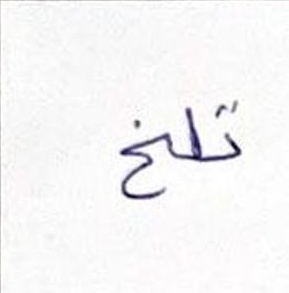 تلخ